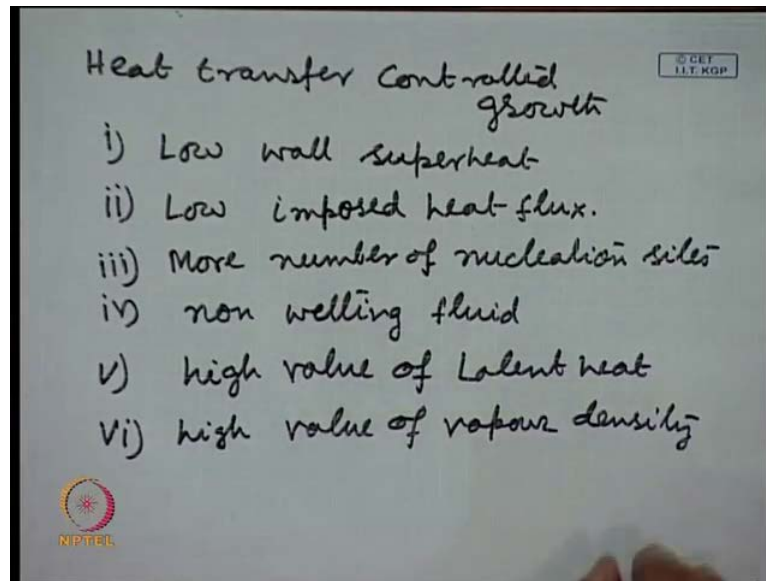 Heat transfer Controlled
© CET
I.I.T. KGP
growth
i) Low wall superheat
ii) Low imposed heat flux.
iii) More number of nucleation sites
iv) non wetting fluid
v) high value of Latent heat
vi) high value of vapour density
NPTEL